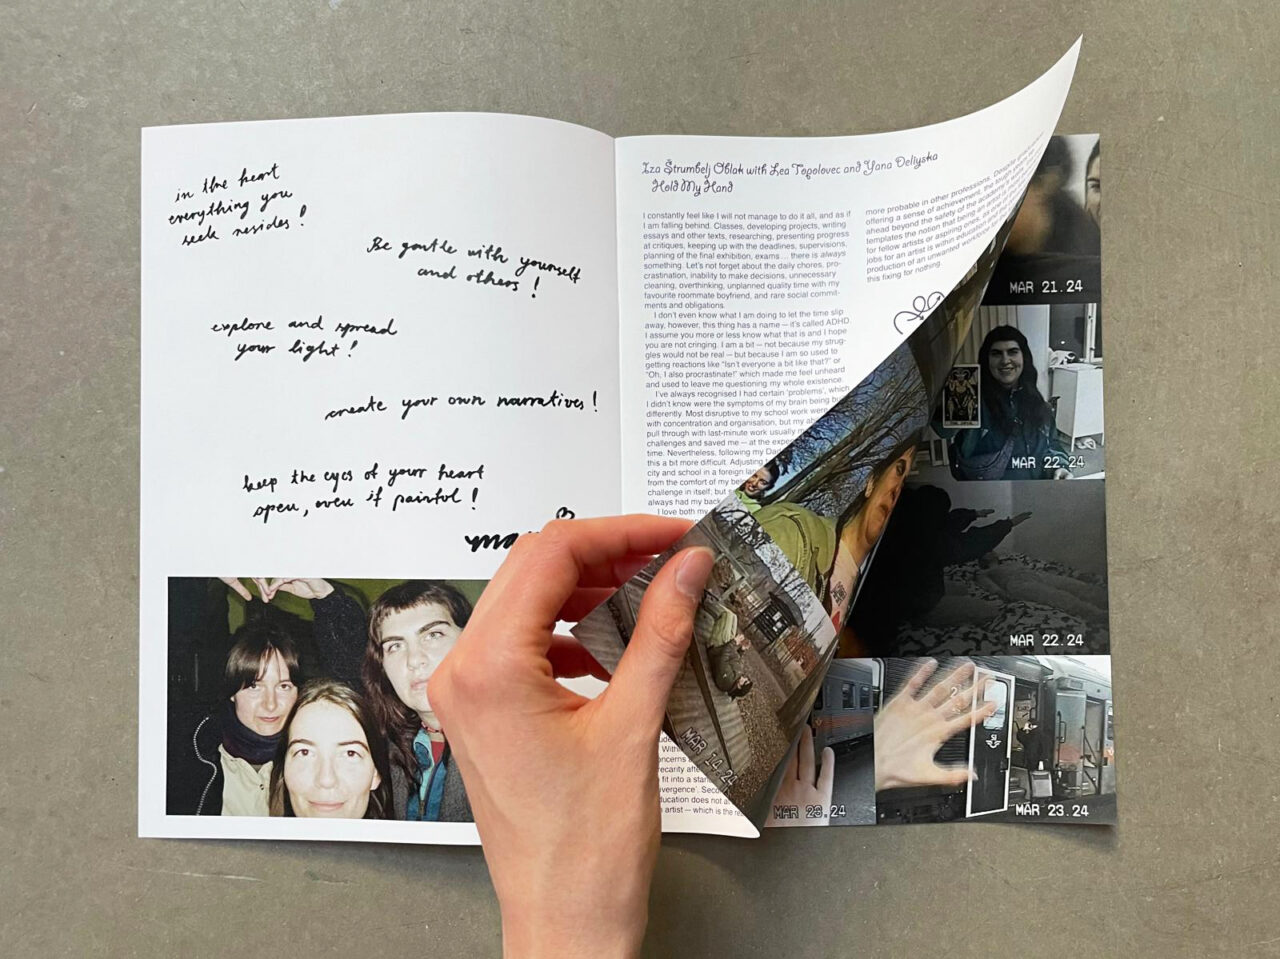 in the heart
everything you
seek resides!
Be gentle with yourself
and others!
explore and spread
your light!
create your own narratives!
keep the eyes of your heart
open, even if painful!
Iza Štrumbelj Oblak with Lea Topolovec and Yana Deliyska
Hold My Hand
I constantly feel like I will not manage to do it all, and as if
I am falling behind. Classes, developing projects, writing
essays and other texts, researching, presenting progress
at critiques, keeping up with the deadlines, supervisions,
planning of the final exhibition, exams ... there is always
something. Let's not forget about the daily chores, pro-
crastination, inability to make decisions, unnecessary
cleaning, overthinking, unplanned quality time with my
favourite roommate boyfriend, and rare social commit-
ments and obligations.
I don't even know what I am doing to let the time slip
away, however, this thing has a name – it's called ADHD.
I assume you more or less know what that is and I hope
you are not cringing. I am a bit – not because my strug-
gles would not be real – but because I am so used to
getting reactions like "Isn't everyone a bit like that?" or
"Oh, I also procrastinate!" which made me feel unheard
and used to leave me questioning my whole existence.
I've always recognised I had certain 'problems', which
I didn't know were the symptoms of my brain being
differently. Most disruptive to my school work were
with concentration and organisation, but my
pull through with last-minute work usually
challenges and saved me – at the
time. Nevertheless, following my
this a bit more difficult. Adjusting
city and school in a foreign
from the comfort of my
challenge in itself; but
always had my back
I love both my
more probable in other professions. Despite
offering a sense of achievement, the
ahead beyond the safety of the academy's
templates the notion that being an artist is
for fellow artists or aspiring ones, as
jobs for an artist is within education and
production of an unwanted workforce
this fixing for nothing.
MAR 21.24
MAR 22.24
MAR 22.24
MAR 14.24
MAR 23.24
MAR 23.24
fit into a
education does not
artist – which is the